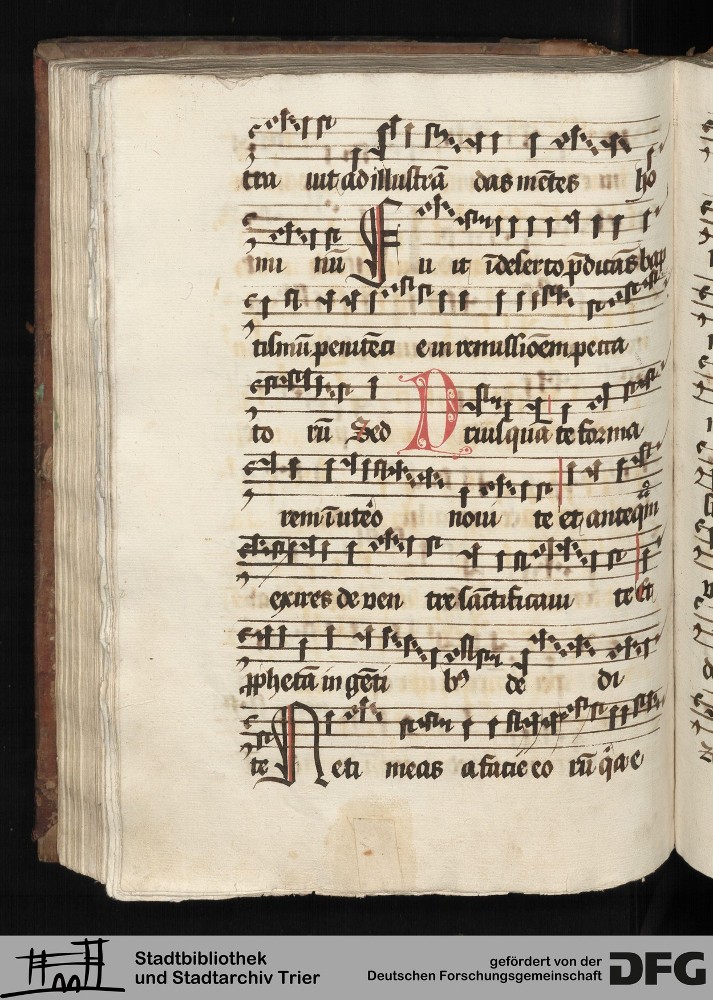 tra uit ad illustrā das mētes ho
mi nū F u it ī deserto p̄dicās bap
tismū penitēti e in remissiōem pecca
to rū Sed P riusquā te forma
rem ī utero noui te et anteqm̄
exires de ven tre sāctificaui te Et
ꝓphetā in gēti bꝰ de di
te N e ti meas a facie eo rū q̄a e
Stadtbibliothek
und Stadtarchiv Trier
gefördert von der
Deutschen Forschungsgemeinschaft
DFG